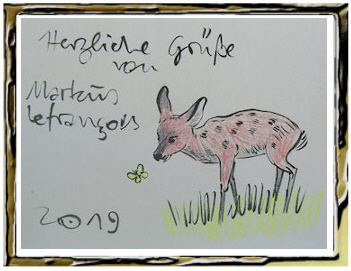 Herzliche Grüße
von
Markus
Lefrançois
2019